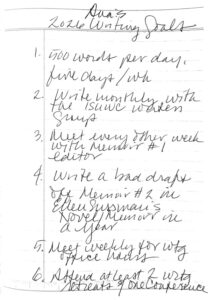 Ava's
2026 Writing Goals
1. 500 words per day,
five days/wk
2. Write monthly with
the women writers
Group
3. Meet every other week
with Memoir #1
editor
4. Write a bad draft
of Memoir #2 in
Novel/Memoir in
a Year
5. Meet weekly for wtg
office hours
6. Attend at least 2 wrtg
retreats & one conference